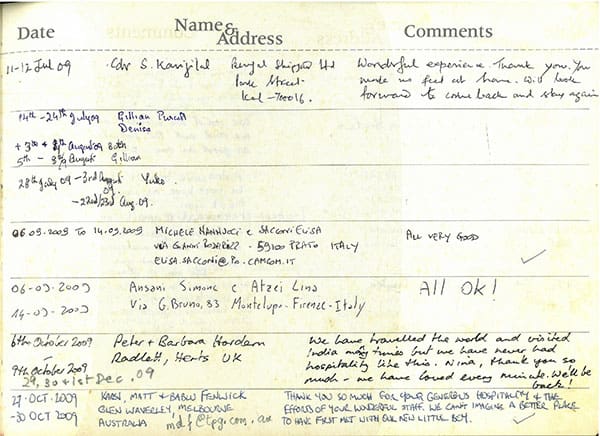 Date Name & Address Comments
11-12 Jul 09 Cdr S. Kanjilal Bengal Shipping Ltd Wonderful experience. Thank you. You
Park Street made us feel at home. Will look
Kol - 700016. forward to come back and stay again
14th - 24th July 09 Gillian
Denise
+ 3rd August 09 Both
5th - August Gillian
28th July 09 - 3rd August 09 Yuko.
- 22nd/23rd Aug. 09.
06.09.2009 TO 14.09.2009 MICHELE NANNUCCI e SACCONI ELISA ALL VERY GOOD
VIA GIANNI - 59100 PRATO ITALY
ELISA.SACCONI@PO.CAMCOM.IT
06-09-2009 Ansani Simone e Atzei Lina All OK!
14-09-2009 Via G. Bruno, 83 Montelupo - Firenze - Italy
6th October 2009 Peter + Barbara Hordern We have travelled the world and visited
- Radlett, Herts UK India many times but we have never had
9th October 2009 hospitality like this. Nina, thank you so
29, 30 + 1st Dec. 09 much - we have loved every minute. We'll be
back!
27 OCT. 2009 MATT & BABU FENWICK THANK YOU SO MUCH FOR YOUR GENEROUS HOSPITALITY & THE
- 30 OCT 2009 GLEN WAVERLEY, MELBOURNE EFFORTS OF YOUR WONDERFUL STAFF. WE CAN'T IMAGINE A BETTER PLACE
AUSTRALIA mdf@tpg.com.au TO HAVE FIRST MET WITH OUR NEW LITTLE BOY.